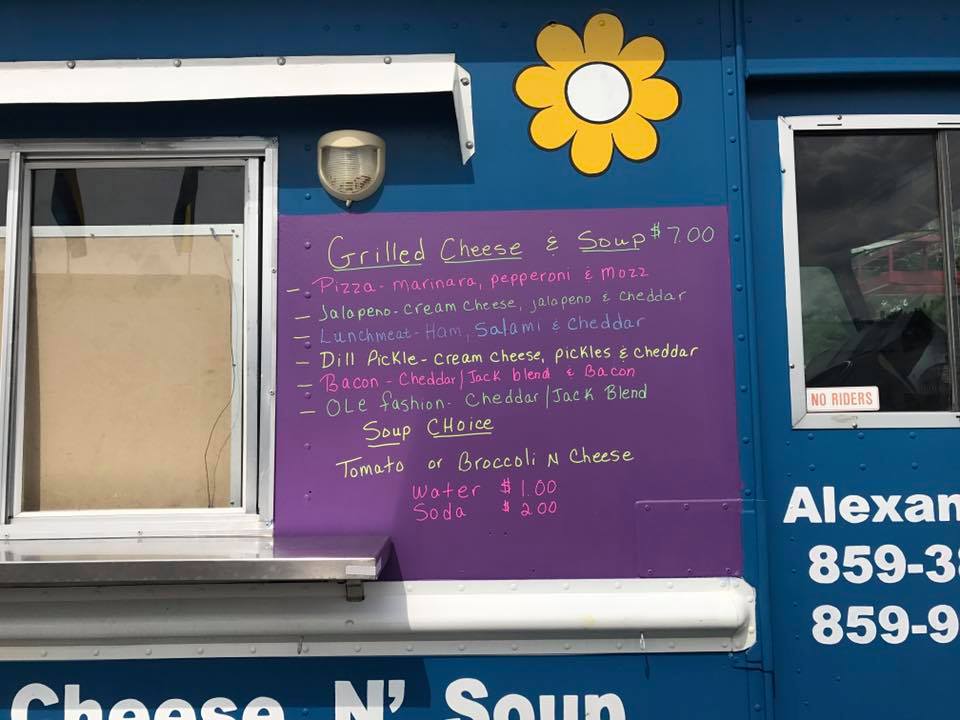 Grilled Cheese & Soup $7.00
- Pizza - marinara, pepperoni & Mozz
- Jalapeno - cream cheese, jalapeno & cheddar
- Lunchmeat - Ham, Salami & Cheddar
- Dill Pickle - cream cheese, pickles & cheddar
- Bacon - Cheddar/Jack blend & Bacon
- OLe fashion - Cheddar/Jack Blend
Soup CHoice
Tomato or Broccoli N Cheese
Water $1.00
Soda $2.00
NO RIDERS
Alexan
859-38
859-9
Cheese N' Soup